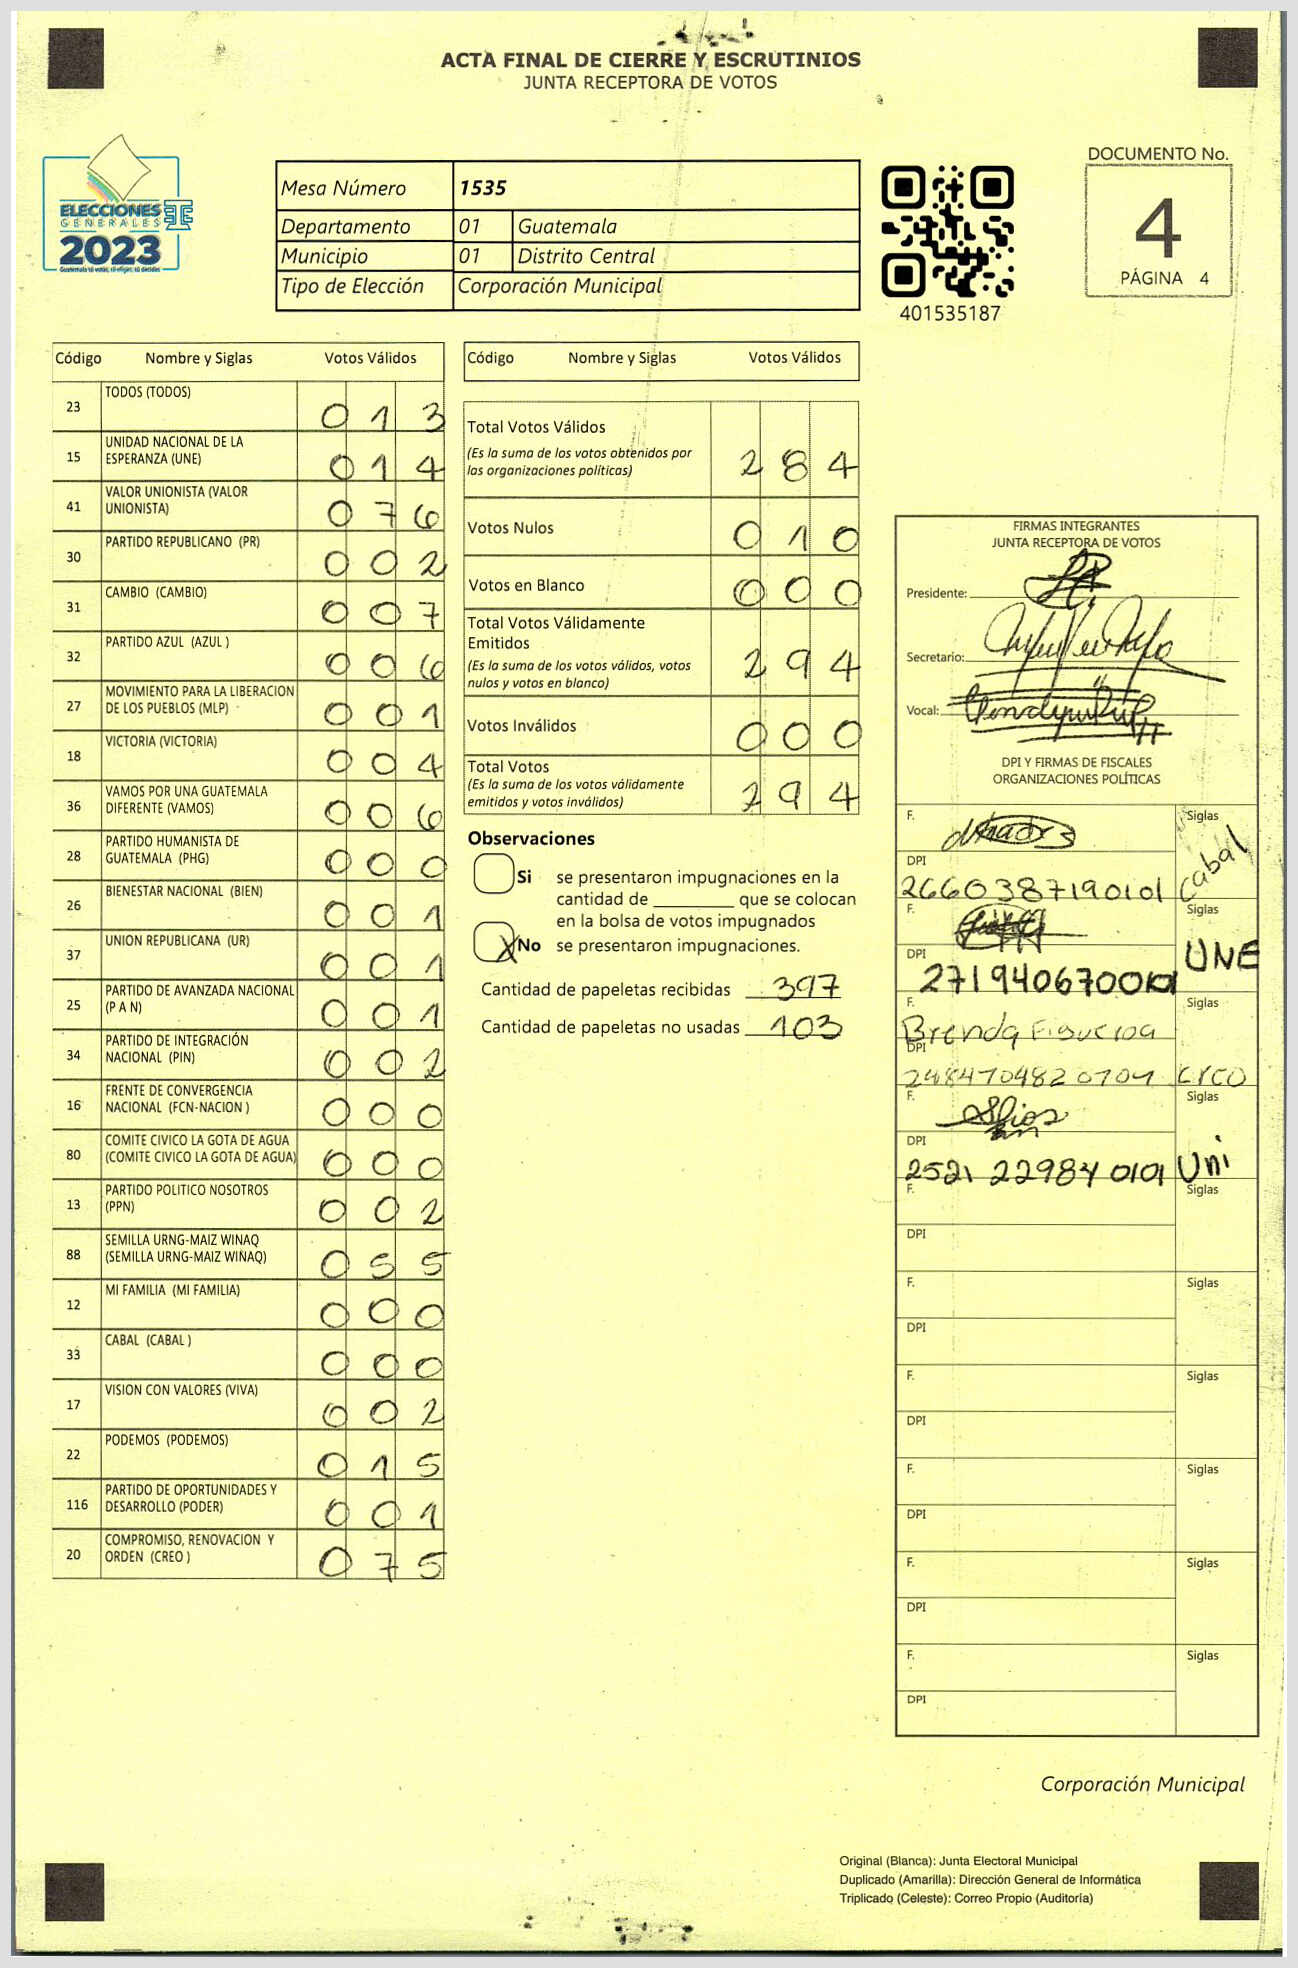 ACTA FINAL DE CIERRE Y ESCRUTINIOS
JUNTA RECEPTORA DE VOTOS
ELECCIONES
GENERALES
2023
Guatemala tú votas, tú eliges, tú decides
Mesa Número 1535
Departamento 01 Guatemala
Municipio 01 Distrito Central
Tipo de Elección Corporación Municipal
401535187
DOCUMENTO No.
4
PÁGINA 4
Código Nombre y Siglas Votos Válidos
23 TODOS (TODOS) 0 1 3
15 UNIDAD NACIONAL DE LA
ESPERANZA (UNE) 0 1 4
41 VALOR UNIONISTA (VALOR
UNIONISTA) 0 7 6
30 PARTIDO REPUBLICANO (PR) 0 0 2
31 CAMBIO (CAMBIO) 0 0 7
32 PARTIDO AZUL (AZUL ) 0 0 6
27 MOVIMIENTO PARA LA LIBERACION
DE LOS PUEBLOS (MLP) 0 0 1
18 VICTORIA (VICTORIA) 0 0 4
36 VAMOS POR UNA GUATEMALA
DIFERENTE (VAMOS) 0 0 6
28 PARTIDO HUMANISTA DE
GUATEMALA (PHG) 0 0 0
26 BIENESTAR NACIONAL (BIEN) 0 0 1
37 UNION REPUBLICANA (UR) 0 0 1
25 PARTIDO DE AVANZADA NACIONAL
(P A N) 0 0 1
34 PARTIDO DE INTEGRACIÓN
NACIONAL (PIN) 0 0 2
16 FRENTE DE CONVERGENCIA
NACIONAL (FCN-NACION ) 0 0 0
80 COMITE CIVICO LA GOTA DE AGUA
(COMITE CIVICO LA GOTA DE AGUA) 0 0 0
13 PARTIDO POLITICO NOSOTROS
(PPN) 0 0 2
88 SEMILLA URNG-MAIZ WINAQ
(SEMILLA URNG-MAIZ WINAQ) 0 5 5
12 MI FAMILIA (MI FAMILIA) 0 0 0
33 CABAL (CABAL ) 0 0 0
17 VISION CON VALORES (VIVA) 0 0 2
22 PODEMOS (PODEMOS) 0 1 5
116 PARTIDO DE OPORTUNIDADES Y
DESARROLLO (PODER) 0 0 1
20 COMPROMISO, RENOVACION Y
ORDEN (CREO ) 0 7 5
Código Nombre y Siglas Votos Válidos
Total Votos Válidos
(Es la suma de los votos obtenidos por
las organizaciones políticas) 2 8 4
Votos Nulos 0 1 0
Votos en Blanco 0 0 0
Total Votos Válidamente
Emitidos
(Es la suma de los votos válidos, votos
nulos y votos en blanco) 2 9 4
Votos Inválidos 0 0 0
Total Votos
(Es la suma de los votos válidamente
emitidos y votos inválidos) 2 9 4
Observaciones
Si se presentaron impugnaciones en la
cantidad de _________ que se colocan
en la bolsa de votos impugnados
X No se presentaron impugnaciones.
Cantidad de papeletas recibidas 397
Cantidad de papeletas no usadas 103
FIRMAS INTEGRANTES
JUNTA RECEPTORA DE VOTOS
Presidente:
Secretario:
Vocal:
DPI Y FIRMAS DE FISCALES
ORGANIZACIONES POLÍTICAS
F. Siglas
DPI 2660387190101 Cabal
F. Siglas
DPI UNE
F. Brenda Figueroa Siglas
DPI
F. Siglas
DPI 2521 22984 0101 Uni
F. Siglas
DPI
F. Siglas
DPI
F. Siglas
DPI
F. Siglas
DPI
F. Siglas
DPI
F. Siglas
DPI
Corporación Municipal
Original (Blanca): Junta Electoral Municipal
Duplicado (Amarilla): Dirección General de Informática
Triplicado (Celeste): Correo Propio (Auditoría)